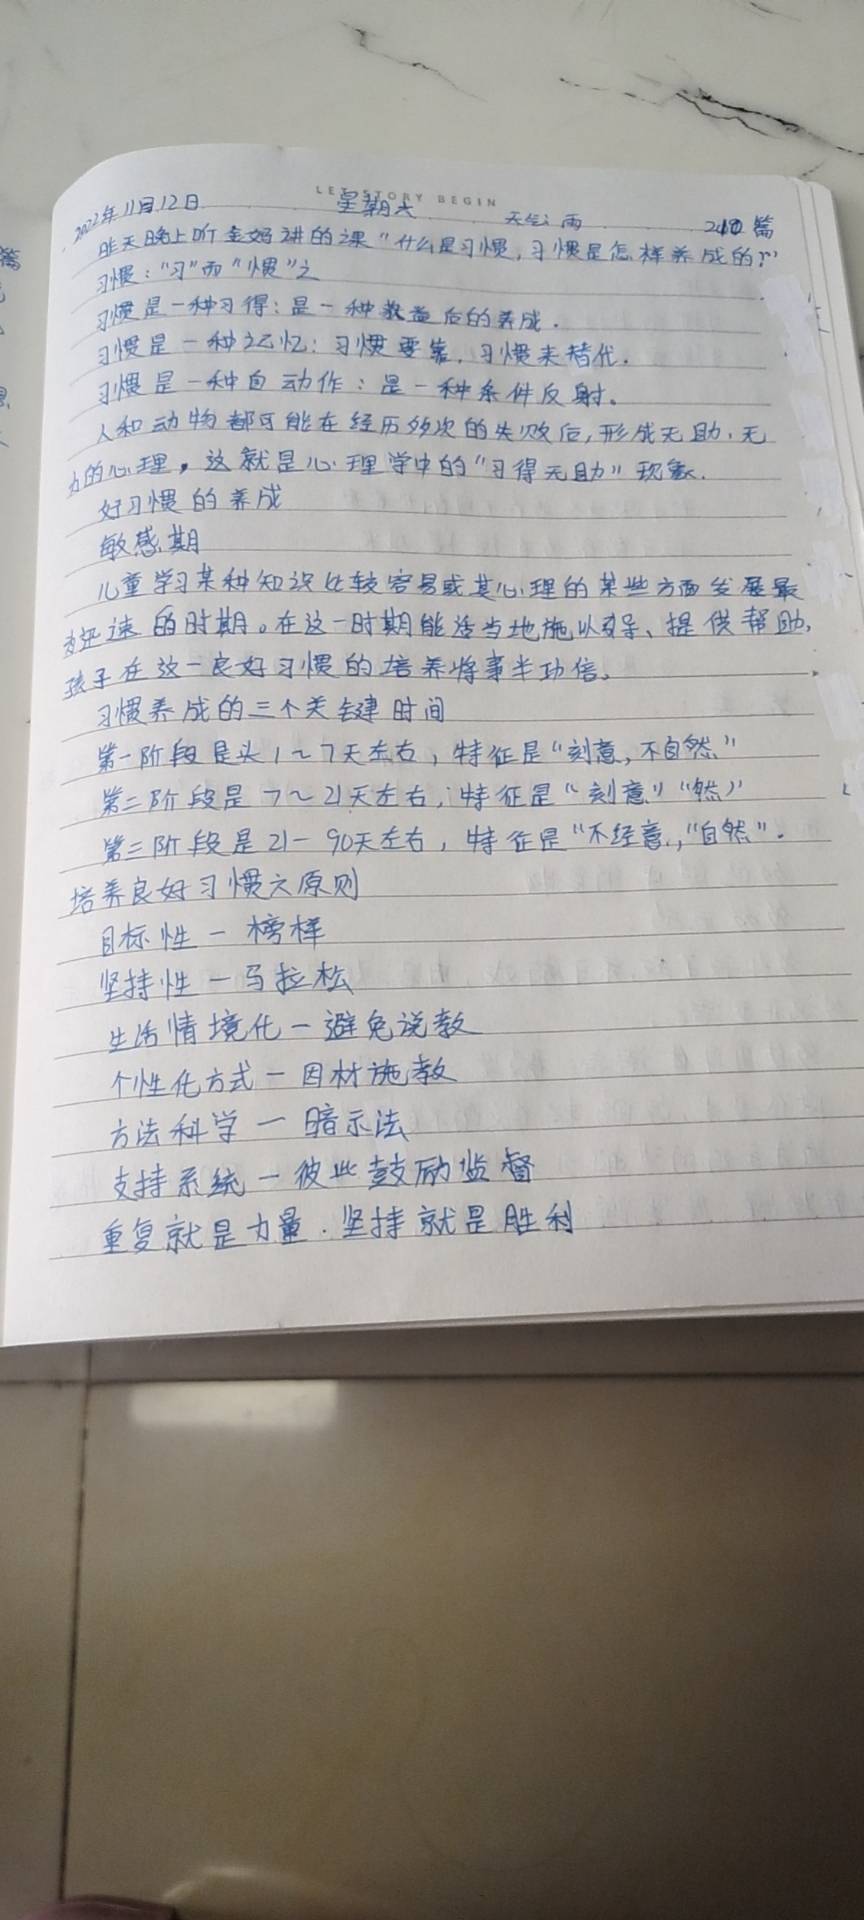 LET STORY BEGIN
2022年11月12日 星期六 天气:雨 240篇
昨天晚上听金妈讲的课"什么是习惯,习惯是怎样养成的?"
习惯:"习"而"惯"之
习惯是一种习得:是一种教益后的养成.
习惯是一种记忆:习惯要靠.习惯来替代.
习惯是一种自动作:是一种条件反射。
人和动物都可能在经历多次的失败后,形成无助、无
力的心理,这就是心理学中的"习得无助"现象.
好习惯的养成
敏感期
儿童学习某种知识比较容易或其心理的某些方面发展最
为迅速的时期。在这一时期能适当地施以引导、提供帮助,
孩子在这一良好习惯的培养将事半功倍。
习惯养成的三个关键时间
第一阶段是头1~7天左右,特征是"刻意,不自然"
第二阶段是7~21天左右,特征是"刻意""然"
第三阶段是21-90天左右,特征是"不经意,"自然".
培养良好习惯六原则
目标性-榜样
坚持性-马拉松
生活情境化-避免说教
个性化方式-因材施教
方法科学-暗示法
支持系统-彼此鼓励监督
重复就是力量.坚持就是胜利